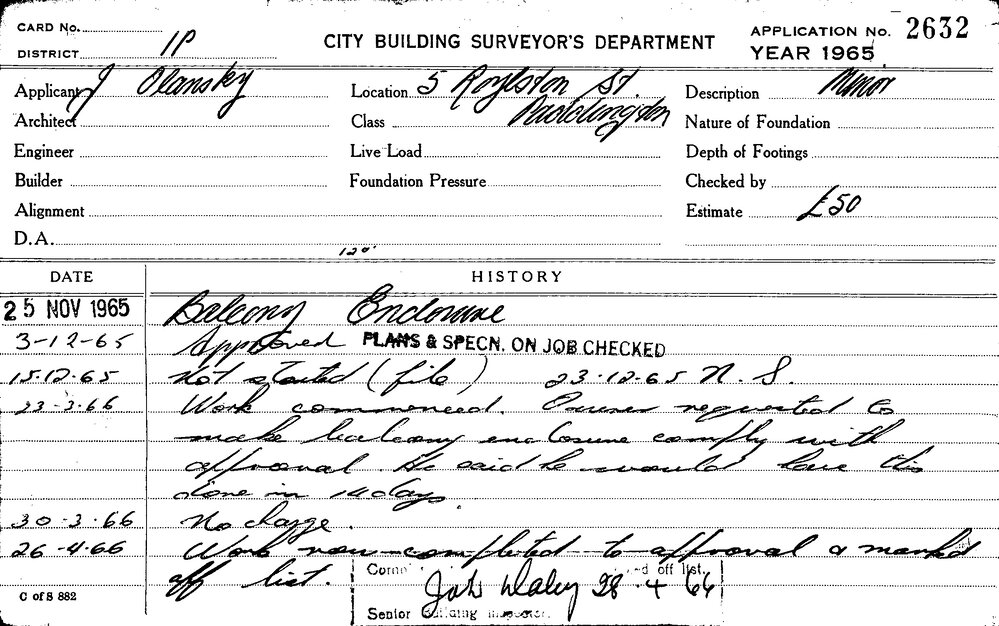 CARD No.
DISTRICT 1P
CITY BUILDING SURVEYOR'S DEPARTMENT
APPLICATION No. 2632
YEAR 1965
Applicant J Olansky
Location 5 Roylston St.
Description Minor
Architect
Class Paddington
Nature of Foundation
Engineer
Live Load
Depth of Footings
Builder
Foundation Pressure
Checked by
Alignment
Estimate £50
D.A.
120'
DATE HISTORY
25 NOV 1965 Balcony Enclosure
3-12-65 Approved PLANS & SPECN. ON JOB CHECKED
15.12.65 Not started (file) 23.12.65 N.S.
23-3.66 Work commenced. Owner requested to
make balcony enclosure comply with
approval. He said he would have this
done in 14 days.
30-3.66 No charge.
26-4.66 Work now completed to approval & marked
off list.
off list.
John Daley 28.4.66
Senior Building Inspector.
C of S 882